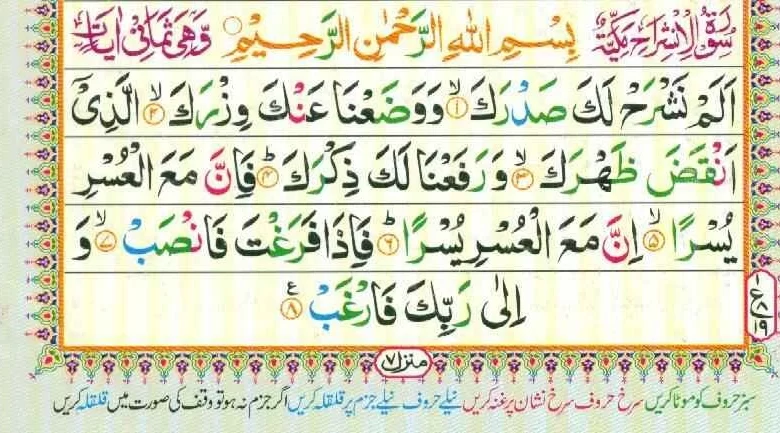 سُوْرَةُ الْاِنْشِرَاحِ مَكِّيَّةٌ بِسْمِ اللهِ الرَّحْمٰنِ الرَّحِيْمِ وَّهِىَ ثَمَانِىْ اٰيَاتٍ
اَلَمْ نَشْرَحْ لَكَ صَدْرَكَ ۙ﴿۱﴾ وَوَضَعْنَا عَنْكَ وِزْرَكَ ۙ﴿۲﴾ الَّذِىْۤ
اَنْقَضَ ظَهْرَكَ ۙ﴿۳﴾ وَرَفَعْنَا لَكَ ذِكْرَكَ ؕ﴿۴﴾ فَاِنَّ مَعَ الْعُسْرِ
يُسْرًا ۙ﴿۵﴾ اِنَّ مَعَ الْعُسْرِ يُسْرًا ؕ﴿۶﴾ فَاِذَا فَرَغْتَ فَانْصَبْ ۙ﴿۷﴾ وَ
اِلٰى رَبِّكَ فَارْغَبْ ﴿۸﴾ ع
۱
ع ۸
۱۹
منزل ۷
سبز حروف کو موٹا کریں سرخ حروف سرخ نشان پر غنہ کریں نیلے حروف نیلے جزم پر قلقلہ کریں اگر جزم نہ ہو تو وقف کی صورت میں قلقلہ کریں